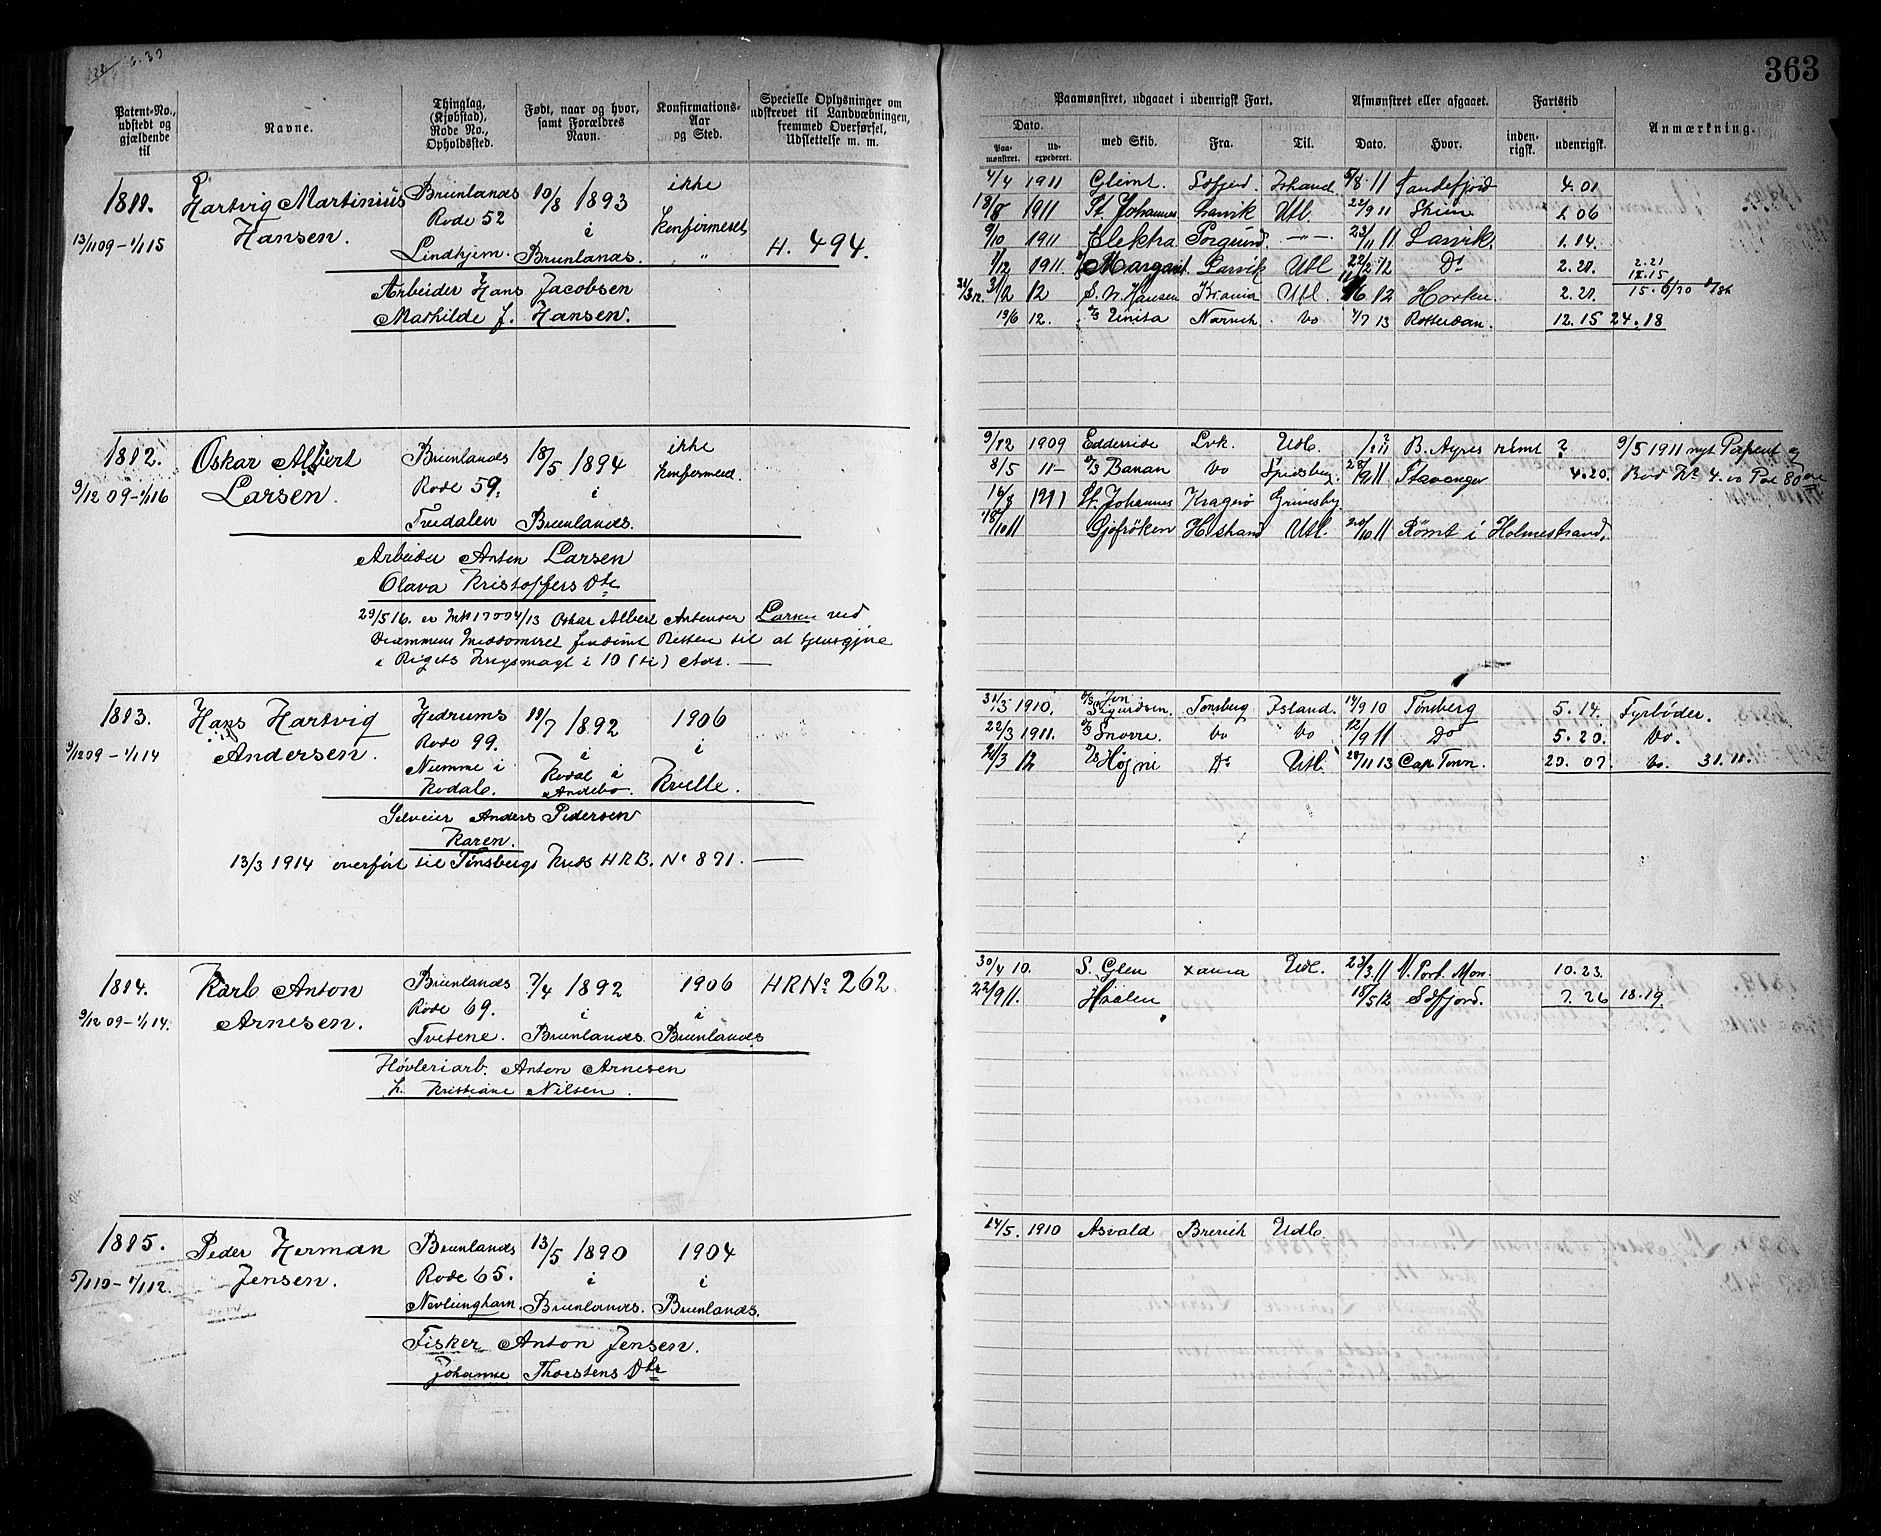 363
Patent-No., udstedt og gjældende til
Navne.
Thinglag, (Kjøbstad), Rode No., Opholdssted.
Født, naar og hvor, samt Forældres Navn.
Konfirmations-Aar og Sted.
Specielle Oplysninger om udskrevet til Landværbningen, fremmed Overførsel, Udslettelse m. m.
Paamønstret, udgaaet i udenrigsk Fart.
Afmønstret eller afgaaet.
Fartstid
Anmærkning.
Dato.
med Skib.
Fra.
Til.
Dato.
Hvor.
inden-rigsk.
udenrigsk.
Paa-mønstret.
Ud-expederet.
1811. Hartvig Martinius Brunlanes 10/8 1893 ikke
Rode 52 i Konfirmeret
13/11 09 – 1/1 15 Hansen. Lindhjem. Brunlanes. " H. 494.
Arbeider Hans Jacobsen
Mathilde f. Hansen.
4/4 1911 Glimt. Sdfjord. Ishavet 5/8 - 11 Sandefjord 4.01
18/8 1911 St Johannes Larvik Utl 22/9 11 Skien 1.06
9/10 1911 Elektra Porsgrund. —"— 23/11 11 Larvik 1.14.
1/12 1911. Margaret Larvik Utl 22/2 12 Do 2.21. 2.21
12 S. W. Hansen Krania Utl. 12 Horten 2.21. 15. 6/20
19/6 12. D/S Unita Narvik. Do 4/7 13 Rotterdam. 12.15 24.18
1812. Oskar Albert Brunlanes 18/5 1894 ikke
Rode 59. i konfirmed.
9/12 09 – 1/1 16 Larsen. Treidalen Brunlanes.
Arbeider Anton Larsen
Olava Kristoffers Dtr
29/5 16. er Oskar Albert Antonsen Larsen ved
Drammens Meddomsret fradømt Retten til at tjenstgjøre
i Rigets Krigsmagt i 10 (ti) Aar. —
9/12 1909 Edderside Lvk. Utl. B. Ayres rømt ? 9/5 1911 nyt Patent og
8/5 11 – D/S Banan Do Spitsberg. 11 Stavanger 4.20. Bod Kr 4.
16/8 1911 St. Johannes Kragerø Grimsby
18/10 11 Gjøfröken H.strand Utl. 20/10 11 Rømt i Holmestrand.
1813. Hans Hartvig Hedrums 11/7 1892 1906
Rode 99. i i
9/12 09 – 1/1 14 Andersen. Numme i Kodal i Kvelle.
Kodal. Andebo.
Selveier Anders Pedersen
Karen.
13/3 1914 overført til Tønsbergs Kreds H.R.B. No 871. —
31/3 1910. D/S Jon Sigurdsen. Tønsberg Island. 14/9 10 Tønsberg 5.14. Fyrbøder.
22/3 1911. D/S Snorre. Do Do 12/9 11 Do 5.20. Do.
21/3 12 D/S Høgni Do Utl. 28/11 13 Cap Town. 20.07 Do. 31.11.
1814. Karl Anton Brunlanes 7/4 1892 1906 HRNo 262.
Rode 69. i i
9/12 09 – 1/1 14. Arnesen. Tvetene. Brunlanes. Brunlanes
Høvleriarb. Anton Arnesen
h. Kristiane Nilsen.
30/4 10. S. Glen Xania Utl. 23/3 11 V. Port. Mon. 10.23.
22/9 11. Haalen 18/5 12 Sdfjord. 7.26 18.19
1815. Peder Herman Brunlanes 13/5 1890 1904
Rode 65. i i
5/1 10 – 1/1 12. Jensen. Nevlunghavn. Brunlanes. Brunlanes.
Fisker Anton Jensen.
Johanne Thorstens Dtr
14/5. 1910 Asvald Brevik Udl.